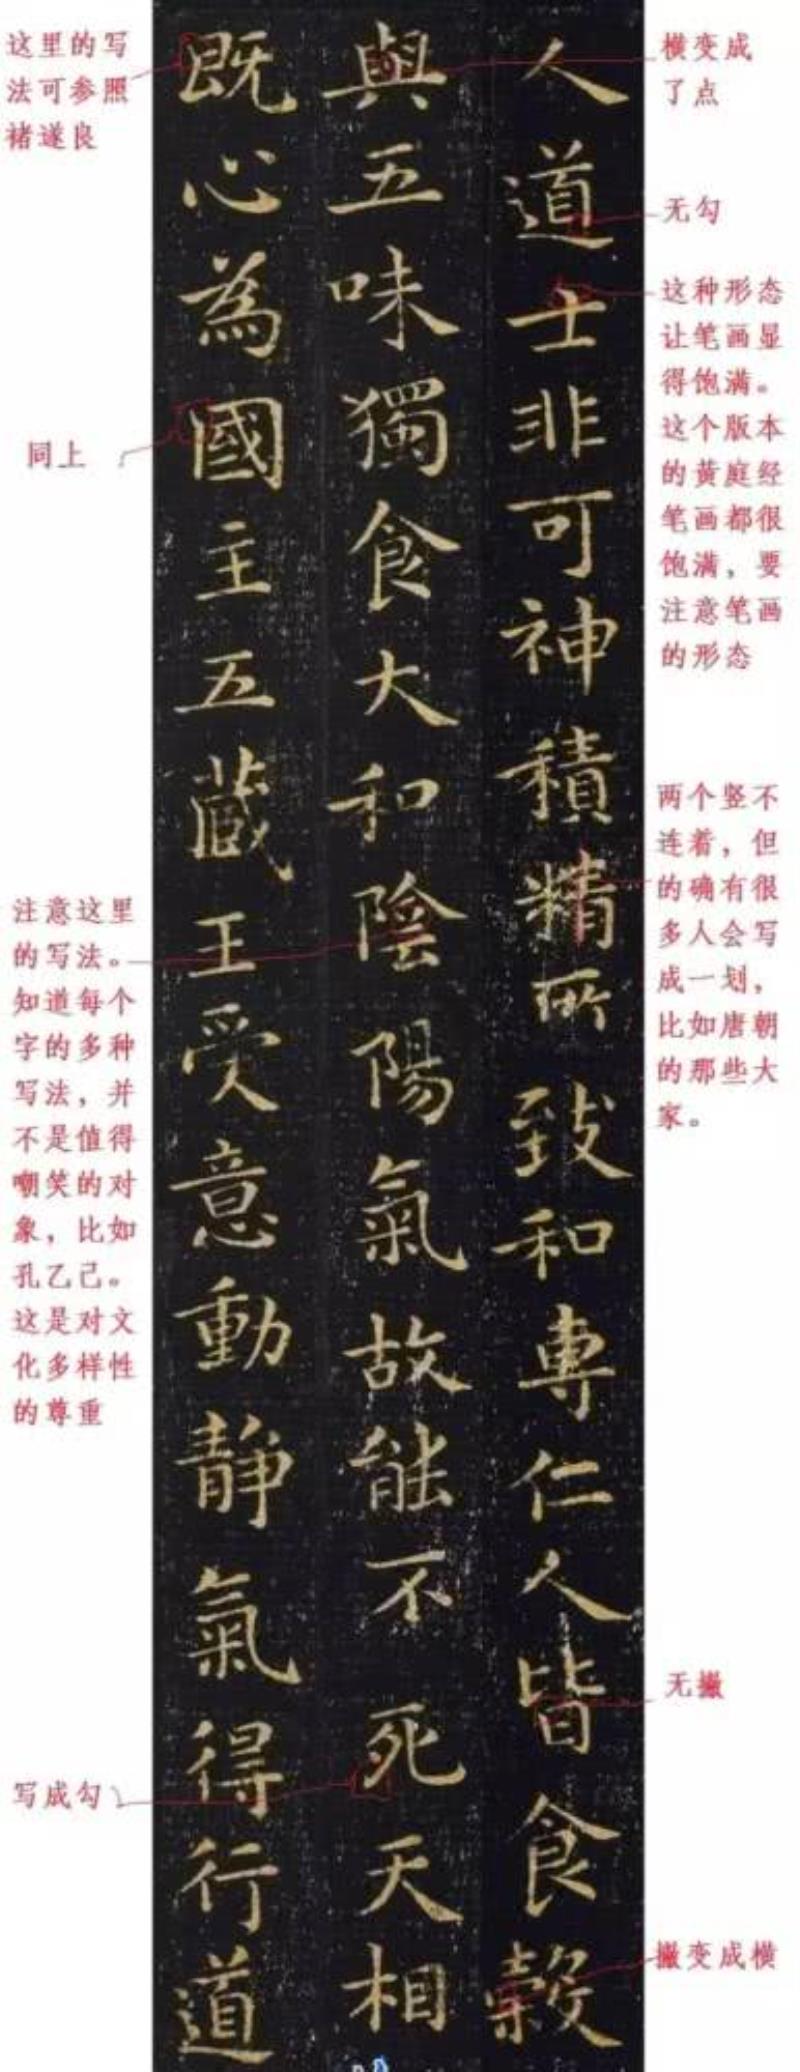 人道士非可神積精所致和専仁人皆食穀
與五味獨食大和陰陽氣故能不死天相
既心為國主五蔵王受意動静氣得行道
横变成
了点
无勾
这种形态
让笔画显
得饱满。
这个版本
的黄庭经
笔画都很
饱满，要
注意笔画
的形态
两个竖不
连着，但
的确有很
多人会写
成一划，
比如唐朝
的那些大
家。
无撇
撇变成横
这里的写
法可参照
褚遂良
同上
注意这里
的写法。
知道每个
字的多种
写法，并
不是值得
嘲笑的对
象，比如
孔乙己。
这是对文
化多样性
的尊重
写成勾